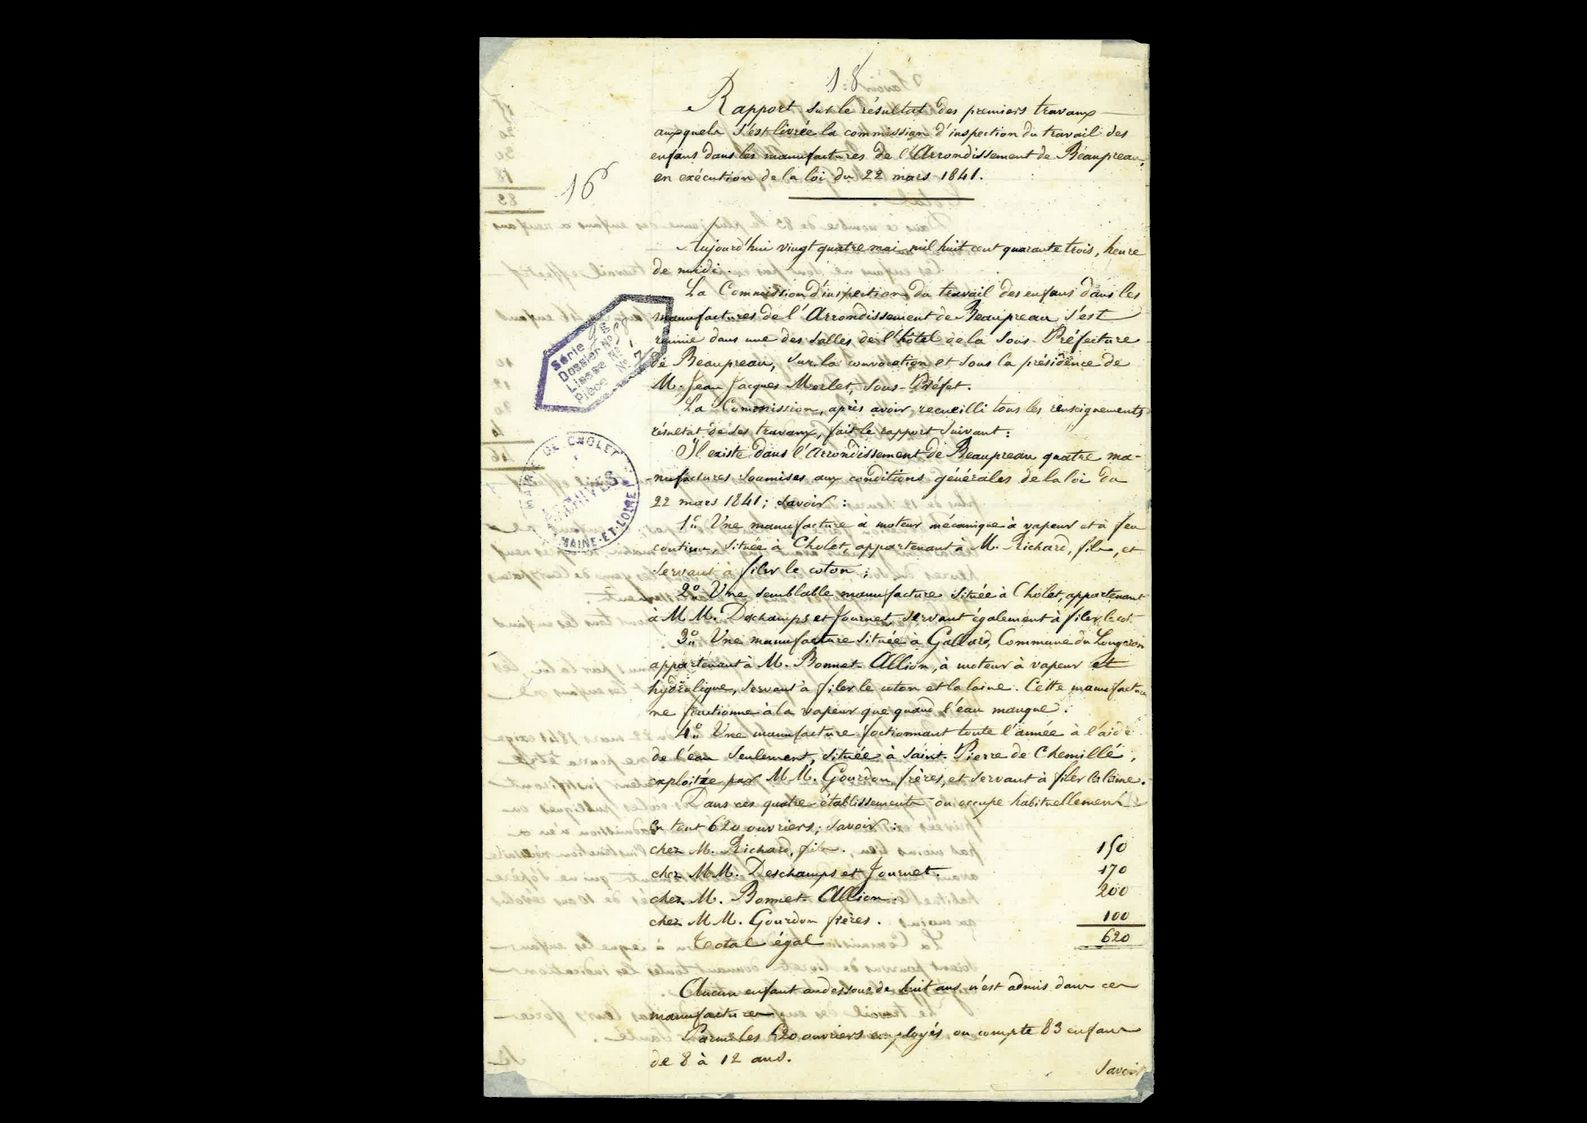 18
Rapport sur le résultat des premiers travaux
auxquels s'est livrée la commission d'inspection du travail des
enfans dans les manufactures de l'Arrondissement de Beaupreau,
en exécution de la loi du 22 mars 1841.
16
Aujourd'hui vingt quatre mai mil huit cent quarante trois, heure
de midi.
La Commission d'inspection du travail des enfans dans les
manufactures de l'Arrondissement de Beaupreau s'est
réunie dans une des salles de l'hôtel de la Sous-Préfecture
de Beaupreau, sur la convocation et sous la présidence de
M. Jean Jacques Merlet, Sous-Préfet.
Série
Dossier N°
Liasse N° 1
Pièce N° 7
La Commission, après avoir recueilli tous les renseignements
résultat de ses travaux, fait le rapport suivant :
MAIRIE DE CHOLET
ARCHIVES
MAINE-ET-LOIRE
Il existe dans l'Arrondissement de Beaupreau quatre ma-
-nufactures soumises aux conditions générales de la loi du
22 mars 1841; savoir :
1° Une manufacture à moteur mécanique à vapeur et à feu
continu, située à Cholet, appartenant à M. Richard, fils, et
servant à filer le coton ;
2° Une semblable manufacture située à Cholet, appartenant
à MM. Deschamps et Journet, servant également à filer le cot.
3° Une manufacture située à Gallard, Commune du Longeron
appartenant à M. Bonnet-Allion, à moteur à vapeur et
hydrolique, servant à filer le coton et la laine. Cette manufacture
ne fonctionne à la vapeur que quand l'eau manque.
4° Une manufacture fonctionnant toute l'année à l'aide
de l'eau seulement, située à Saint-Pierre de Chemillé,
exploitée par MM. Gourdon frères, et servant à filer la laine.
Dans ces quatre établissements on occupe habituellement
en tout 620 ouvriers; savoir :
chez M. Richard, fils. 150
chez MM. Deschamps et Journet. 170
chez M. Bonnet-Allion. 200
chez MM. Gourdon frères. 100
Total égal 620
Aucun enfant au dessous de huit ans n'est admis dans ces
manufactures
Parmi les 620 ouvriers employés on compte 83 enfans
de 8 à 12 ans.
Savoir